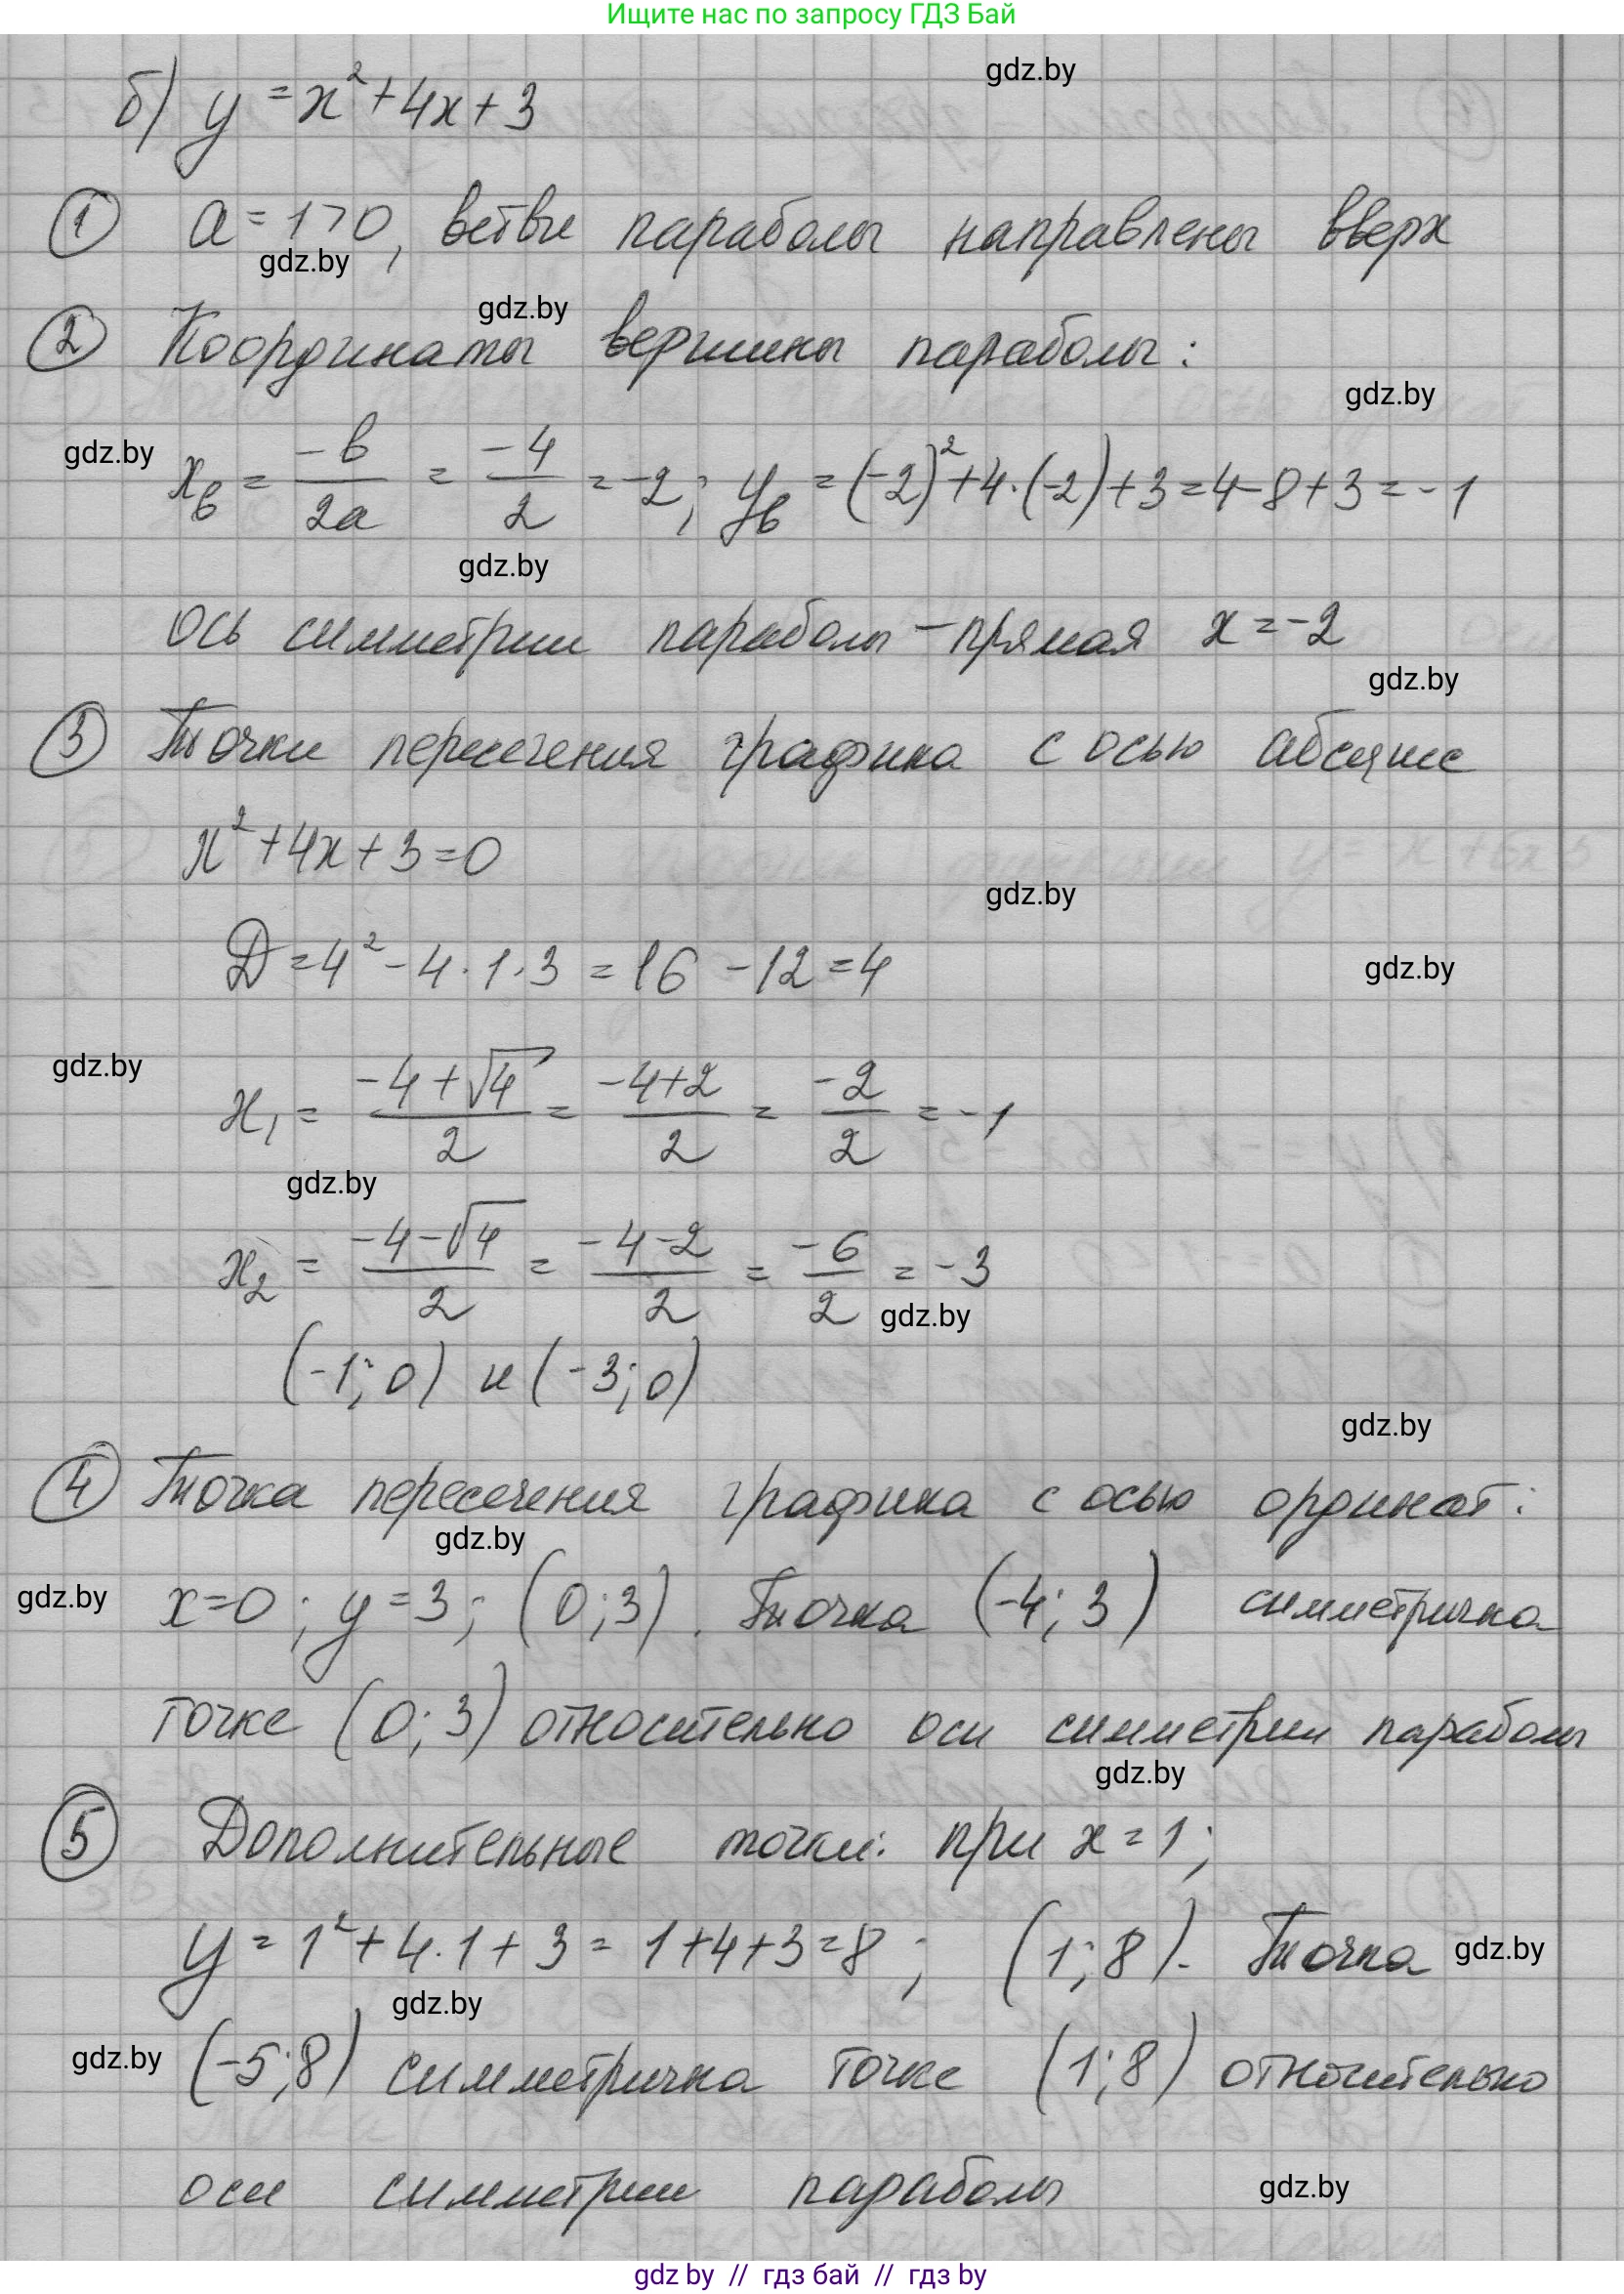 Ищите нас по запросу ГДЗ Бай
gdz.by
б) y = x² + 4x + 3
① a = 1 > 0, ветви параболы направлены вверх
gdz.by
gdz.by
② Координаты вершины параболы:
gdz.by
gdz.by
x_в = -b/2a = -4/2 = -2; y_в = (-2)² + 4·(-2) + 3 = 4 - 8 + 3 = -1
gdz.by
ось симметрии параболы – прямая x = -2
gdz.by
③ Точки пересечения графика с осью абсцисс
x² + 4x + 3 = 0
gdz.by
D = 4² - 4·1·3 = 16 - 12 = 4
gdz.by
gdz.by
x₁ = (-4+√4)/2 = (-4+2)/2 = -2/2 = -1
gdz.by
x₂ = (-4-√4)/2 = (-4-2)/2 = -6/2 = -3
gdz.by
(-1; 0) и (-3; 0)
gdz.by
④ Точка пересечения графика с осью ординат:
gdz.by
gdz.by
x = 0; y = 3; (0; 3). Точка (-4; 3) симметрична
точке (0; 3) относительно оси симметрии параболы
gdz.by
⑤ Дополнительные точки: при x = 1;
y = 1² + 4·1 + 3 = 1 + 4 + 3 = 8; (1; 8). Точка
gdz.by
gdz.by
gdz.by
(-5; 8) симметрична точке (1; 8) относительно
оси симметрии параболы
gdz.by
gdz by // гдз бай // гдз by